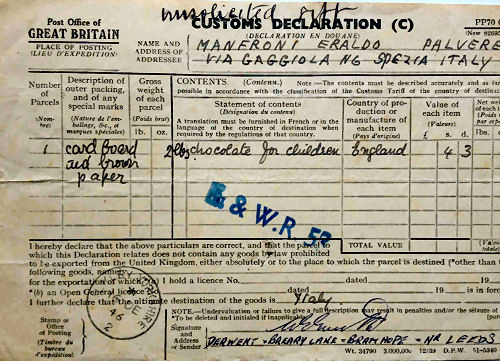 unsolicited gift
Post Office of
GREAT BRITAIN
PLACE OF POSTING
(LIEU D'EXPEDITION)
CUSTOMS DECLARATION (C)
(DECLARATION EN DOUANE)
PP70
NAME AND
ADDRESS OF
ADDRESSEE
MANFRONI ERALDO PALVERE
VIA GAGGIOLA NG SPEZIA ITALY
Number
of
Parcels
(Nom-
bre)
Description of
outer packing,
and of any
special marks
(Nature de l'em-
ballage, &c., et
marques spéciales)
Gross
weight
of each
parcel
(Poids brut)
lb. oz.
CONTENTS. (Contenu.) Note:—The contents must be described accurately and as far
possible in accordance with the classification of the Customs Tariff of the country of destination
Statement of contents
(Désignation du contenu)
A translation must be furnished in French or in the
language of the country of destination when
required by the regulations of that country.
Country of pro-
duction or
manufacture of
each item
(Pays d'origine)
Value of
each item
(Valeurs)
£ s. d.
Net
of each
(Poids
par
1 card board
and brown
paper
2 lbs chocolate for children England 4 3
& W.R. 52
TOTAL VALUE
I hereby declare that the above particulars are correct, and that the parcel to
which this Declaration relates does not contain any goods by law prohibited
to be exported from the United Kingdom, either absolutely or to the place to which the parcel is destined (*other than
following goods, name
for the exportation of which I hold a licence No. dated 19
*(b) an Open General dated 19 is in force).
I further declare that the ultimate destination of the goods is Italy
46
NOTE.—Undervaluation or failure to give a full description may result in penalties and/or the seizure of
*To be deleted and initialed if inapplicable.
Stamp or
Office of
Posting
(Timbre du
bureau
d'expédition)
Signature
and
Address
of Sender
DERWENT - BREARY LANE - BRAMHOPE - NR LEEDS
Wt. 34790 3,000,00s 12/39 D.P.W.